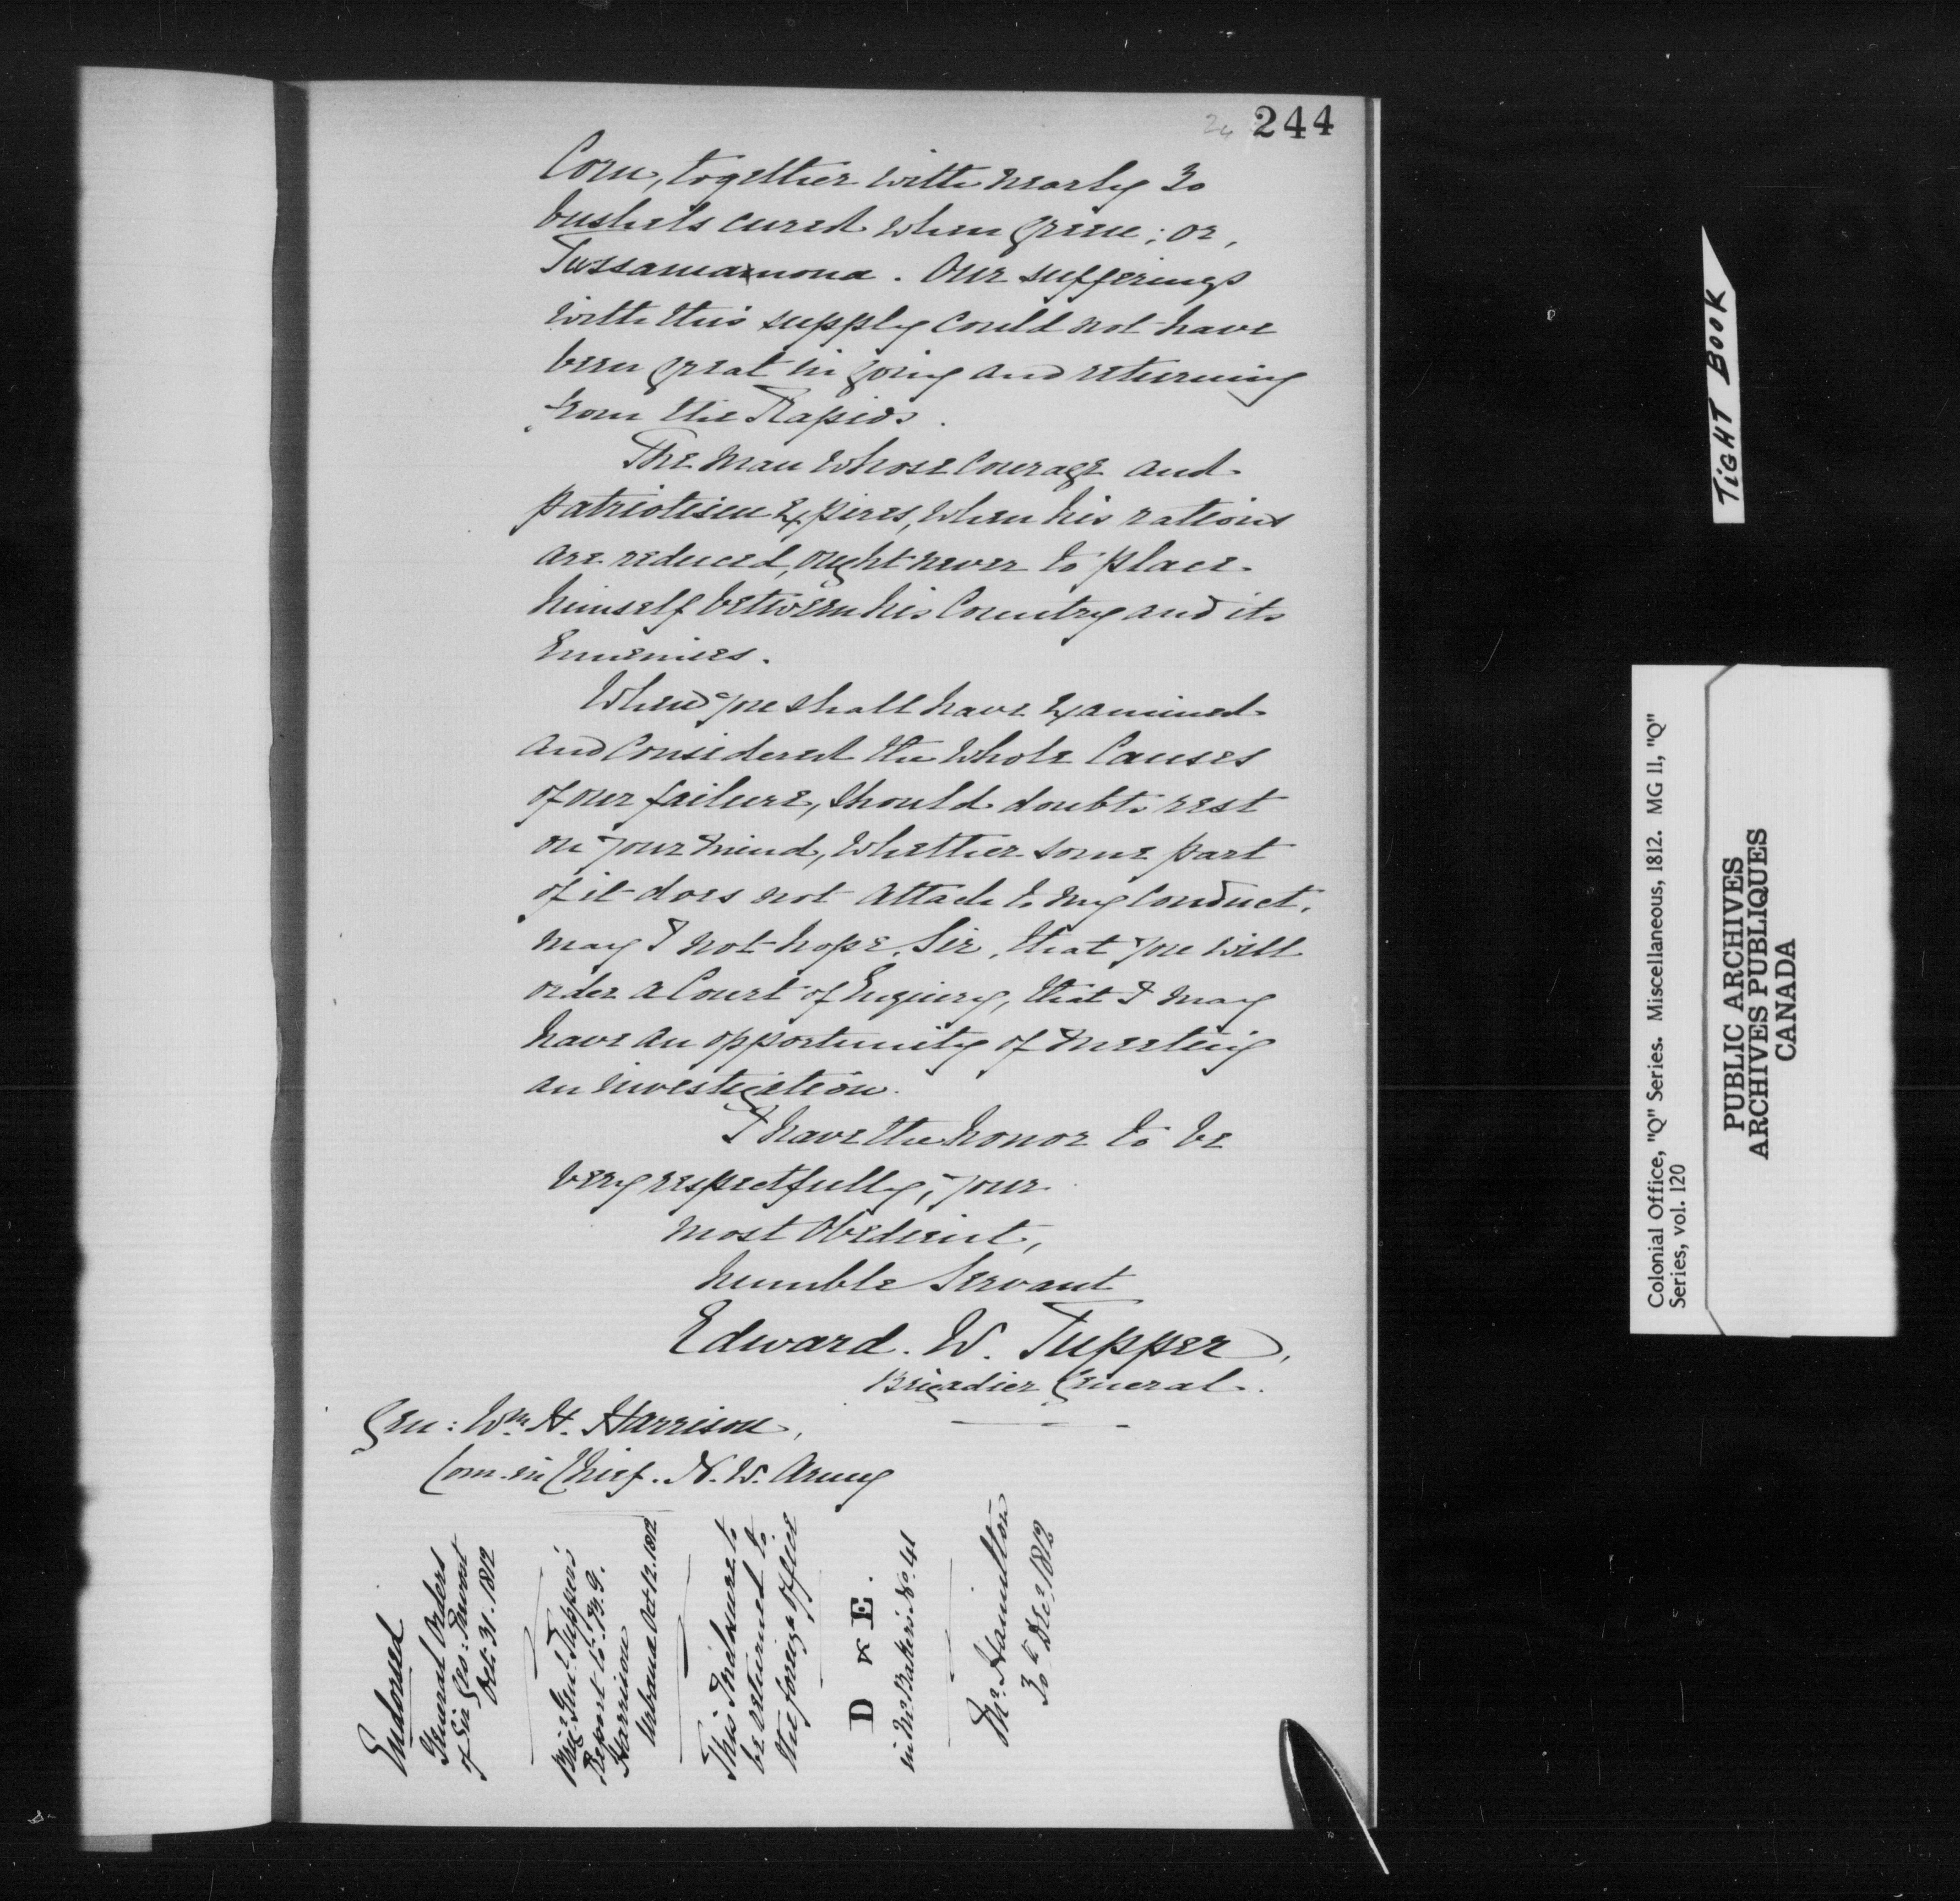 24 244
Corn, together with nearly 30
bushels cured when green; or,
Tussamanona. Our sufferings
with this supply could not have
been great in going and returning
from the Rapids.
The man whose courage and
patriotism expires, when his rations
are reduced, ought never to place
himself between his Country and its
Ennemies.
When you shall have examined
and considered the whole Causes
of our failure, should doubts rest
on your mind, whether some part
of it does not attach to my conduct,
may I not hope, Sir, that you will
order a Court of Enquiry, that I may
have an opportunity of meeting
an investigation.
I have the honor to be
very respectfully, your
most Obedient,
humble Servant
Edward. W. Tupper,
Brigadier General.
Gen: Wm. H. Harrison,
Com. in Chief. N. W. Army
Endorsed
General Orders
of Sir Geo: Prevost
Oct: 31. 1812
Brig. Genl. Tupper's
Report to M. G.
Harrison
Urbana Oct 12. 1812
This Inclosure to
be returned to
the foreign Office
D & E.
in Mr. Baker's No. 41
Mr. Hamilton
30th Decr. 1812
TIGHT BOOK
Colonial Office, "Q" Series. Miscellaneous, 1812. MG 11, "Q"
Series, vol. 120
PUBLIC ARCHIVES
ARCHIVES PUBLIQUES
CANADA